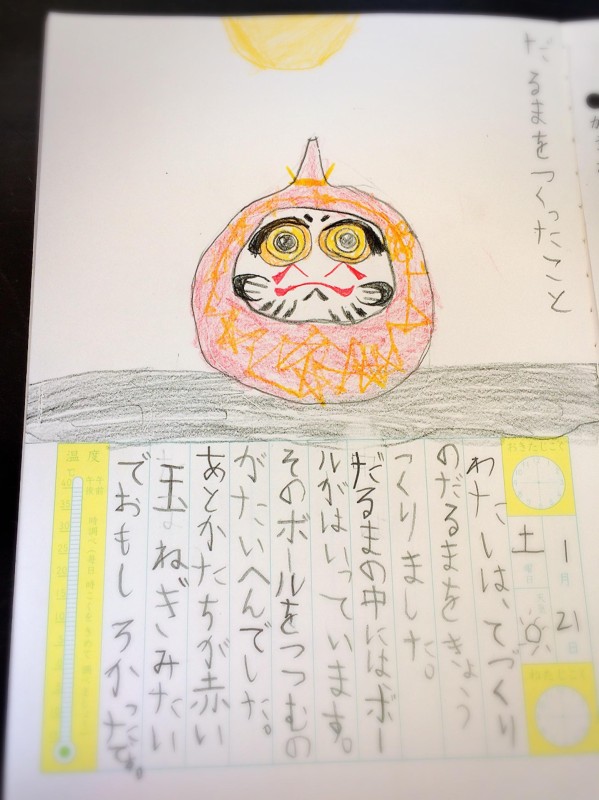 だるまをつくったこと
おきたじこく
1月21日
土曜日
わたしは、てづくり
のだるまをきょう
つくりました。
だるまの中にはボー
ルがはいっています。
そのボールをつつむの
がたいへんでした。
あとかたちが赤い
玉ねぎみたい
でおもしろかったです。
温度
℃
午前
午後